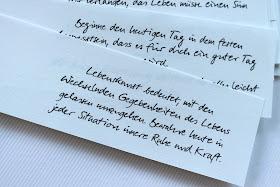 verlanden, das Leben müsse einen Sinn
Beginne den heutigen Tag in dem festen
dass es für dich ein guter Tag
wird.
leicht
Lebenskunst bedeutet, mit den
wechselnden Gegebenheiten des Lebens
gelassen umzugehen. Bewahre heute in
jeder Situation innere Ruhe und Kraft.